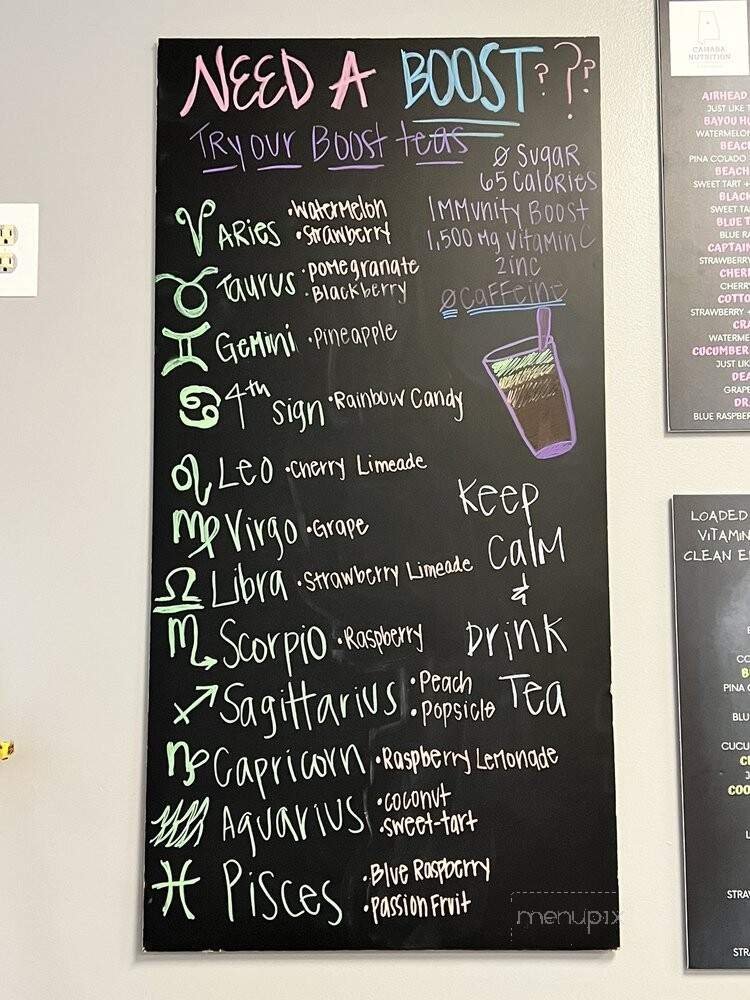 NEED A BOOST???
Try our Boost teas
Ø Sugar
65 Calories
Immunity Boost
1,500 Mg Vitamin C
Zinc
Ø Caffeine
Aries
•Watermelon
•Strawberry
Taurus
•Pomegranate
•Blackberry
Gemini •Pineapple
4th sign •Rainbow Candy
Leo •Cherry Limeade
Virgo •Grape
Libra •Strawberry Limeade
Scorpio •Raspberry
Sagittarius
•Peach
•Popsicle
Capricorn •Raspberry Lemonade
Aquarius
•Coconut
•Sweet-tart
Pisces
•Blue Raspberry
•Passion Fruit
Keep
Calm
&
Drink
Tea
menupix
CAHABA
NUTRITION
AIRHEAD
JUST LIKE
BAYOU
WATERMELON
PINA COLADO
SWEET TART +
SWEET
BLUE
CAPTAIN
STRAWBERRY
CHERRY
STRAWBERRY +
CUCUMBER
JUST
BLUE RASPBERRY
LOADED
VITAMIN
CLEAN
PINA